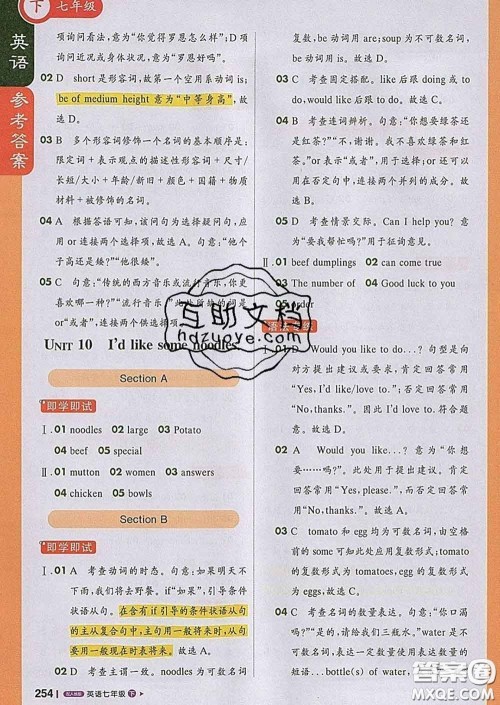 下 七年级
英语
参考答案
项询问看法，意为“你觉得罗恩怎么样”；D 项
询问近况或身体状况，意为“罗恩好吗”。
02 D short 是形容词，故第一个空用系动词 is；
be of medium height 意为“中等身高”，故
选 D。
03 B 多个形容词修饰一个名词的基本顺序是：
限定词＋表示观点的描述性形容词＋尺寸/
长短/大小＋形状＋新旧＋颜色＋国籍＋物质
材料＋被修饰的名词。
04 A 根据答语可知，该问句为选择疑问句，应
用 or 连接两个选择项，故选 A。句意：“他个
子高还是矮？”“他很矮。”
05 C 句意：“传统的西方音乐或流行音乐，你更
喜欢哪一种？”“流行音乐。”此处所缺的词是
or“或者”，用于连接两个供选择项。
UNIT 10 I'd like some noodles.
Section A
即学即试
Ⅰ. 01 noodles 02 large 03 Potato
04 beef 05 special
Ⅱ. 01 mutton 02 women 03 answers
04 chicken 05 bowls
Section B
即学即试
Ⅰ. 01 A 考查动词的时态。句意：如果明天不
下雨，我们将去野餐。if“如果”，引导条件
状语从句。在含有 if 引导的条件状语从句
的主从复合句中，主句用一般将来时，从句
要用一般现在时表将来。故选 A。
02 D 考查主谓一致。noodles 为可数名词
254 英语七年级 下
复数，故 be 动词用复数形式 are。故选 D。
03 C 考查固定搭配。like 后跟 doing 或 to
do，would like 后跟 to do。故选 C。
04 B 考查连词辨析。句意：“你喜欢绿茶还是
红茶？”“不，谢谢。我不喜欢绿茶和红
茶。”or 表示“或者”，用于选择问句，还可以
在否定句中，连接两个并列的成分。故
选 B。
05 D 考查情景交际。Can I help you? 意为
“要我帮忙吗？”用于征询意见。
Ⅱ. 01 beef dumplings 02 can come true
03 The number of 04 Good luck to you
05 order
语法专练
Ⅰ. 01 D Would you like to do…? 句型是向
对方提出建议或要求，肯定回答常用
“Yes, I'd like/love to.”，否定回答常用
“No, thanks.”。因此 I'd love to 符合题
意。故选 D。
02 A Would you like…? 意为“你想
要……吗？”。此处用于提出建议。肯定回
答常用“Yes, please”，而否定回答常用
“No, thanks.”。故选 A。
03 C tomato 和 egg 均为可数名词，由空格
前的 some 可知此处应用复数形式，
tomatoes、eggs 都是复数形式，故选 C。
04 C 考查名词的数量表达。句意：“你口渴
吗？”“是的，我想要一些水。”water 是不
可数名词，不能用 many 来修饰，其数量的
短语…bottle(s) of water。故
互助文档
hdzuoye.com
答案圈
MXQE.COM